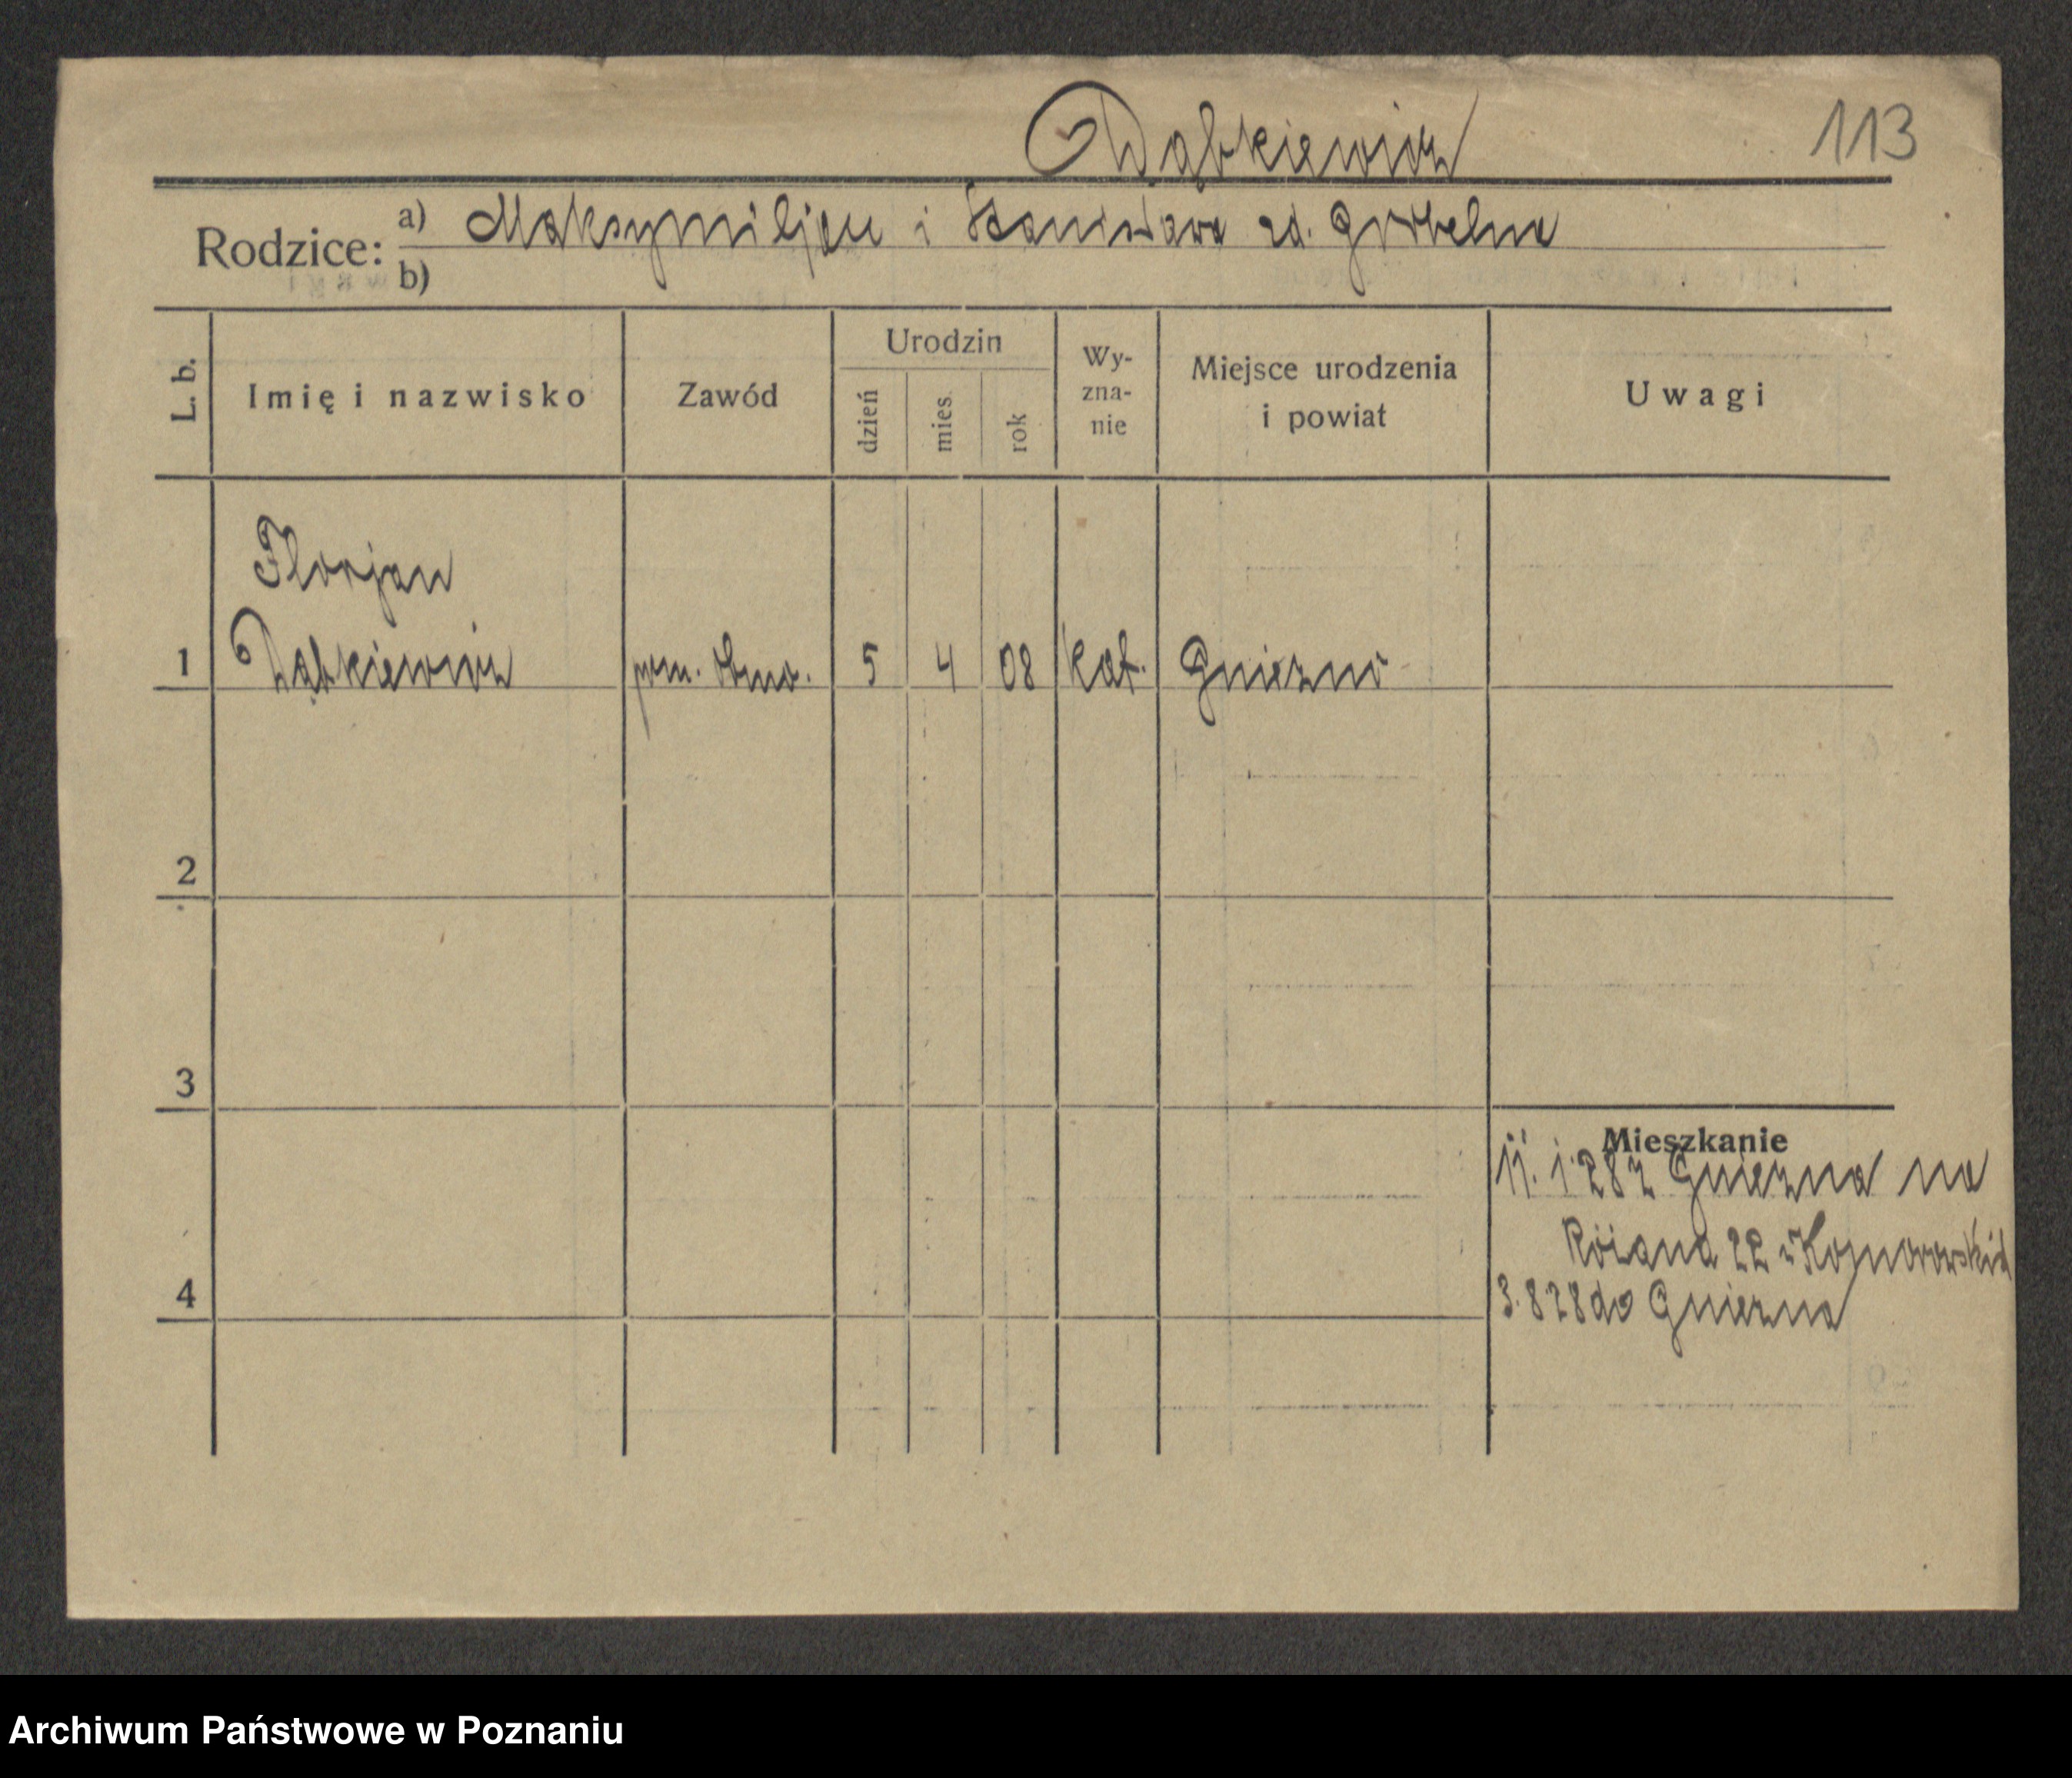 Dąbkiewicz 113
Rodzice: a) Maksymiljan i Stanisława zd. Grobelna
b)
L. b. Imię i nazwisko Zawód Urodzin dzień mies. rok Wyznanie Miejsce urodzenia i powiat Uwagi
Florjan
1 Dąbkiewicz 5 4 08 kat. Gniezno
2
3
Mieszkanie
11. 1. 28 z Gniezna na
Różana 22 u Komorowskich
4 3. 8 28 do Gniezna
Archiwum Państwowe w Poznaniu